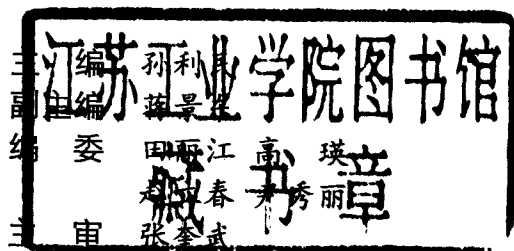 江苏工业学院图书馆
藏书章
主 编 孙利
副主编 蒋景
编 委 田丽江 高 瑛
春 秀丽
主 审 张奎武